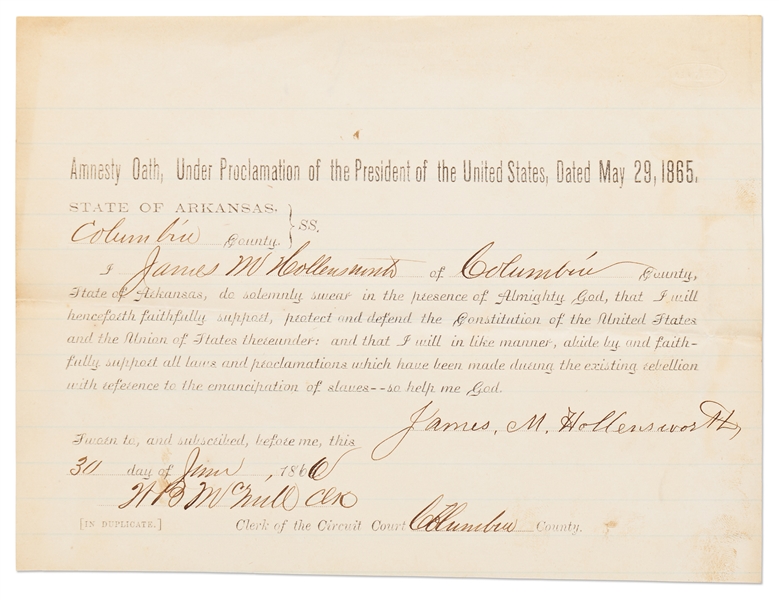 Amnesty Oath, Under Proclamation of the President of the United States, Dated May 29, 1865.
STATE OF ARKANSAS. } SS.
Columbia County.
I James M Hollensworth of Columbia County,
State of Arkansas, do solemnly swear in the presence of Almighty God, that I will
henceforth faithfully support, protect and defend the Constitution of the United States
and the Union of States thereunder: and that I will in like manner, abide by and faith-
fully support all laws and proclamations which have been made during the existing rebellion
with reference to the emancipation of slaves--so help me God.
James. M. Hollensworth
Sworn to, and subscribed, before me, this
30 day of June, 1866
Clk
[IN DUPLICATE.] Clerk of the Circuit Court Columbia County.